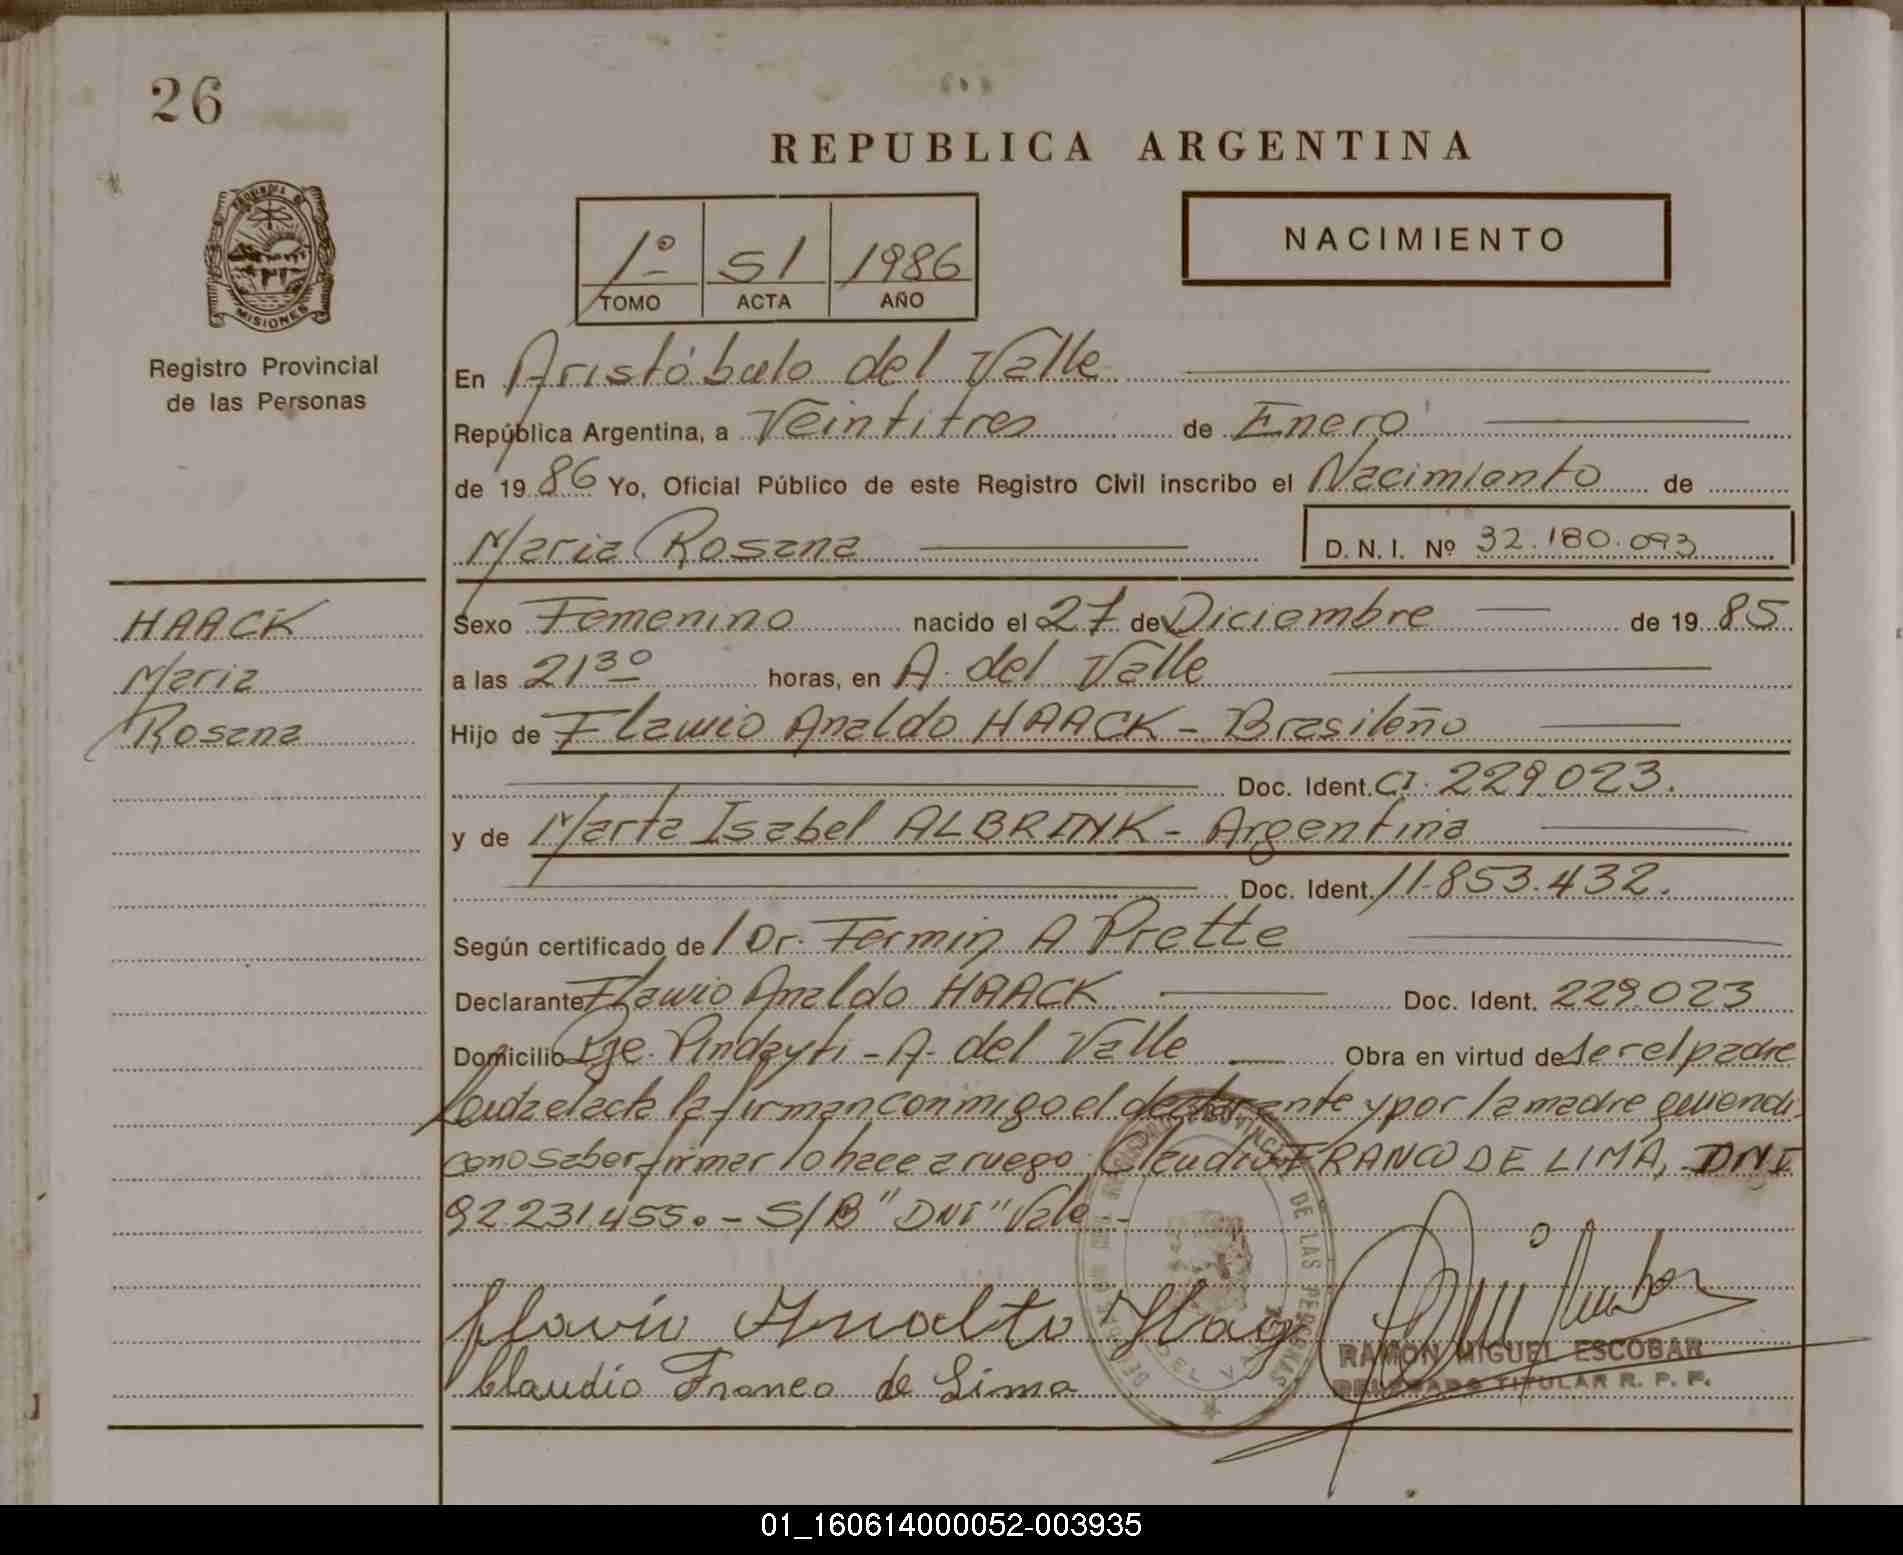 26
REPUBLICA ARGENTINA
PROVINCIA DE
MISIONES
Registro Provincial
de las Personas
1º 51 1986
TOMO ACTA AÑO
NACIMIENTO
En Aristóbulo del Valle
República Argentina, a Veintitres de Enero
de 1986 Yo, Oficial Público de este Registro Civil inscribo el Nacimiento de
Maria Rosana D. N. I. Nº 32.180.093
HAACK
Maria
Rosana
Sexo Femenino nacido el 27 de Diciembre de 1985
a las 21 30 horas, en A. del Valle
Hijo de Flawio Analdo HAACK - Brasileño
Doc. Ident. CI. 229.023.
y de Marta Isabel ALBRINK - Argentina
Doc. Ident. 11.853.432.
Según certificado de / Dr. Fermin A Prette
Declarante Flawio Analdo HAACK Doc. Ident. 229.023
Domicilio Pje. Pindayti - A. del Valle Obra en virtud de ser el padre
Leida el acta la firman conmigo el declarante y por la madre quien di-
ce no saber firmar lo hace a ruego Claudio FRANCO DE LIMA, DNI
92.231.455.- S/B "DNI" Vale -
flavio Analto Haag
Claudio Franco de Lima
RAMON MIGUEL ESCOBAR
DELEGADO TITULAR R. P. P.
01_160614000052-003935